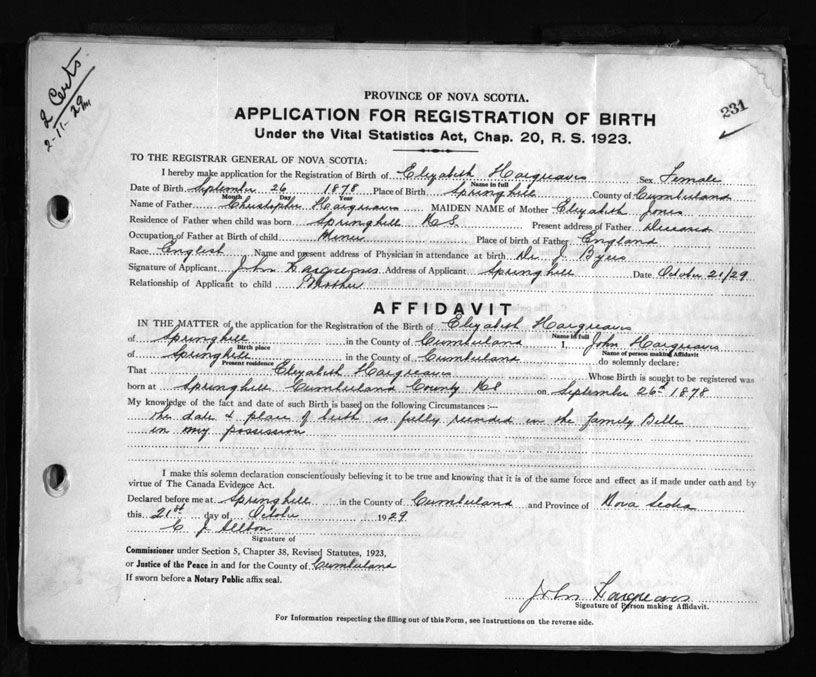 2 Certs
2-11-29
231
PROVINCE OF NOVA SCOTIA.
APPLICATION FOR REGISTRATION OF BIRTH
Under the Vital Statistics Act, Chap. 20, R. S. 1923.
TO THE REGISTRAR GENERAL OF NOVA SCOTIA:
I hereby make application for the Registration of Birth of Elizabeth Hargreaves Sex Female
Name in full
Date of Birth September 26 1878 Place of Birth Springhill County of Cumberland
Month Day Year
Name of Father Christopher Hargreaves MAIDEN NAME of Mother Elizabeth Jones
Residence of Father when child was born Springhill N.S. Present address of Father Deceased
Occupation of Father at Birth of child Miner Place of birth of Father England
Race English Name and present address of Physician in attendance at birth Dr J Byers
Signature of Applicant John Hargreaves Address of Applicant Springhill Date October 21/29
Relationship of Applicant to child Brother
AFFIDAVIT
IN THE MATTER of the application for the Registration of the Birth of Elizabeth Hargreaves
Name in full
of Springhill in the County of Cumberland I, John Hargreaves
Birth place Name of person making Affidavit
of Springhill in the County of Cumberland do solemnly declare:
Present residence
That Elizabeth Hargreaves Whose Birth is sought to be registered was
born at Springhill Cumberland County NS on September 26th 1878
My knowledge of the fact and date of such Birth is based on the following Circumstances :—
the date & place of birth is fully recorded in the family Bible
in my possession
I make this solemn declaration conscientiously believing it to be true and knowing that it is of the same force and effect as if made under oath and by
virtue of The Canada Evidence Act.
Declared before me at Springhill in the County of Cumberland and Province of Nova Scotia
this 21st day of October 1929
C J
Signature of
Commissioner under Section 5, Chapter 38, Revised Statutes, 1923,
or Justice of the Peace in and for the County of Cumberland
If sworn before a Notary Public affix seal.
John Hargreaves
Signature of Person making Affidavit.
For Information respecting the filling out of this Form, see Instructions on the reverse side.